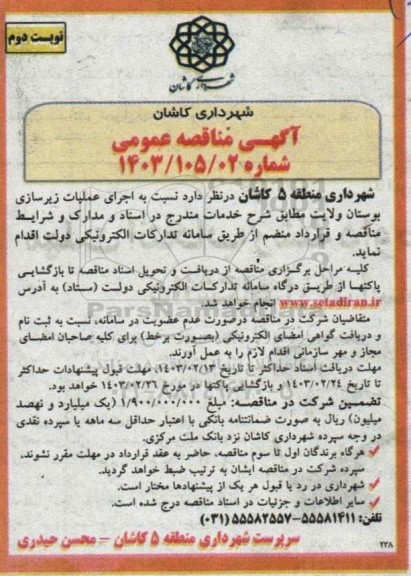 نوبت دوم
شهرداری کاشان
شهرداری کاشان
آگهی مناقصه عمومی
شماره ۱۴۰۳/۱۰۵/۰۲
شهرداری منطقه ۵ کاشان درنظر دارد نسبت به اجرای عملیات زیرسازی
بوستان ولایت مطابق شرح خدمات مندرج در اسناد و مدارک و شرایط
مناقصه و قرارداد منضم از طریق سامانه تدارکات الکترونیکی دولت اقدام
نماید.
کلیه مراحل برگزاری مناقصه از دریافت و تحویل اسناد مناقصه تا بازگشایی
پاکتها از طریق درگاه سامانه تدارکات الکترونیکی دولت (ستاد) به آدرس
www.setadiran.ir انجام خواهد شد.
متقاضیان شرکت در مناقصه درصورت عدم عضویت در سامانه، نسبت به ثبت نام
و دریافت گواهی امضای الکترونیکی (بصورت برخط) برای کلیه صاحبان امضای
مجاز و مهر سازمانی اقدام لازم را به عمل آورند.
مهلت دریافت اسناد حداکثر تا تاریخ ۱۴۰۳/۰۲/۱۳، مهلت قبول پیشنهادات حداکثر
تا تاریخ ۱۴۰۳/۰۲/۲۴ و بازگشایی پاکتها در مورخ ۱۴۰۳/۰۲/۲۶ خواهد بود.
تضمین شرکت در مناقصه: مبلغ ۱/۹۰۰/۰۰۰/۰۰۰ (یک میلیارد و نهصد
میلیون) ریال به صورت ضمانتنامه بانکی با اعتبار حداقل سه ماهه یا سپرده نقدی
در وجه سپرده شهرداری کاشان نزد بانک ملت مرکزی.
✓ هرگاه برندگان اول تا سوم مناقصه، حاضر به عقد قرارداد در مهلت مقرر نشوند،
سپرده شرکت در مناقصه ایشان به ترتیب ضبط خواهد گردید.
✓ شهرداری در رد یا قبول هر یک از پیشنهادها مختار است.
✓ سایر اطلاعات و جزئیات در اسناد مناقصه درج شده است.
تلفن: ۵۵۵۸۱۴۱۱-۵۵۵۸۲۵۵۷ (۰۳۱)
سرپرست شهرداری منطقه ۵ کاشان – محسن حیدری
۲۳۸